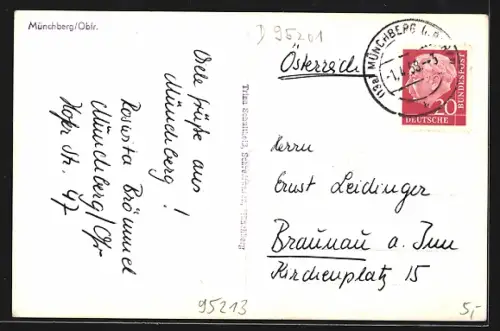 Münchberg/Obfr.
D 95201
Viele Grüße aus
Münchberg!
Roswita Brömmel
Münchberg/Ofr
Hofer Str. 47
95213
Österreich
(13a) MÜNCHBERG
20
DEUTSCHE
BUNDESPOST
Herrn
Ernst Leidinger
Braunau a. Inn
Kirchenplatz 15
5,-